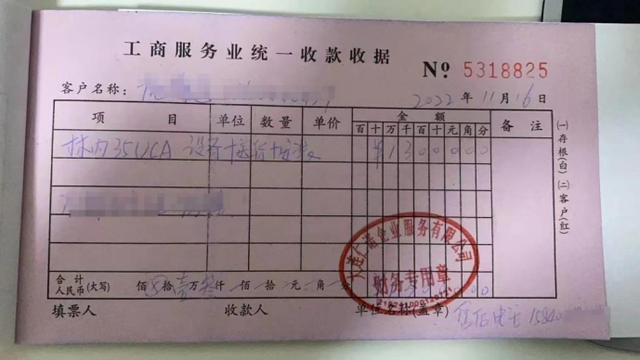 工商服务业统一收款收据
№ 5318825
客户名称:
2022年11月16日
项目 单位 数量 单价 金额 备注
百 十 万 千 百 十 元 角 分
林内35UCA 设备+送货+安装 1 3 0 0 0 0 0
合计人民币(大写) 佰 拾壹万叁仟 佰 拾 元 角 分
填票人 收款人 单位名称(盖章)
企业服务有限公司
财务专用章
(一)存根(白) (二)客户(红)